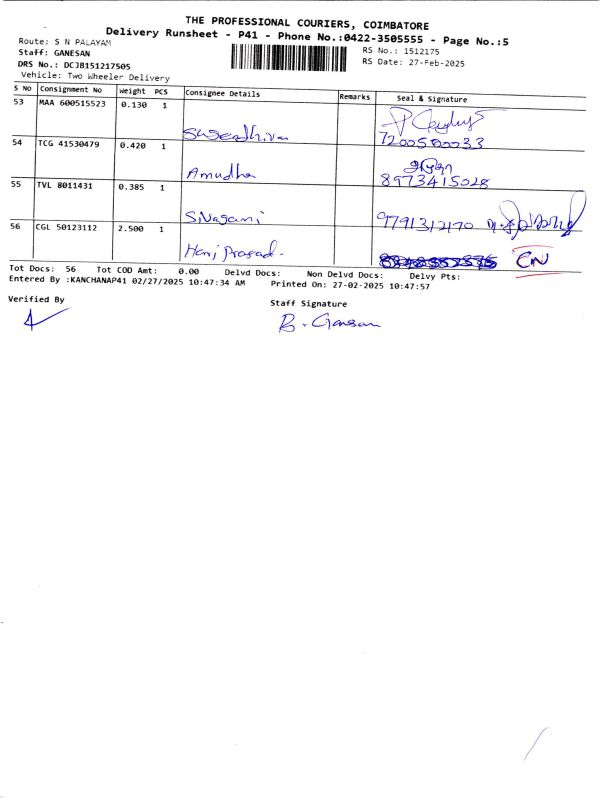 THE PROFESSIONAL COURIERS, COIMBATORE
Delivery Runsheet - P41 - Phone No.:0422-3505555 - Page No.:5
Route: S N PALAYAM
Staff: GANESAN
DRS No.: DCJB151217505
Vehicle: Two Wheeler Delivery
RS No.: 1512175
RS Date: 27-Feb-2025
S No Consignment No Weight PCS Consignee Details Remarks Seal & Signature
53 MAA 600515523 0.130 1
7200580033
54 TCG 41530479 0.420 1
Amudha 8973415028
55 TVL 8011431 0.385 1
S.Nagami 9791312170
56 CGL 50123112 2.500 1
Hari prasad. CN
Tot Docs: 56 Tot COD Amt: 0.00 Delvd Docs: Non Delvd Docs: Delvy Pts:
Entered By :KANCHANAP41 02/27/2025 10:47:34 AM Printed On: 27-02-2025 10:47:57
Verified By
Staff Signature
B. Ganesan